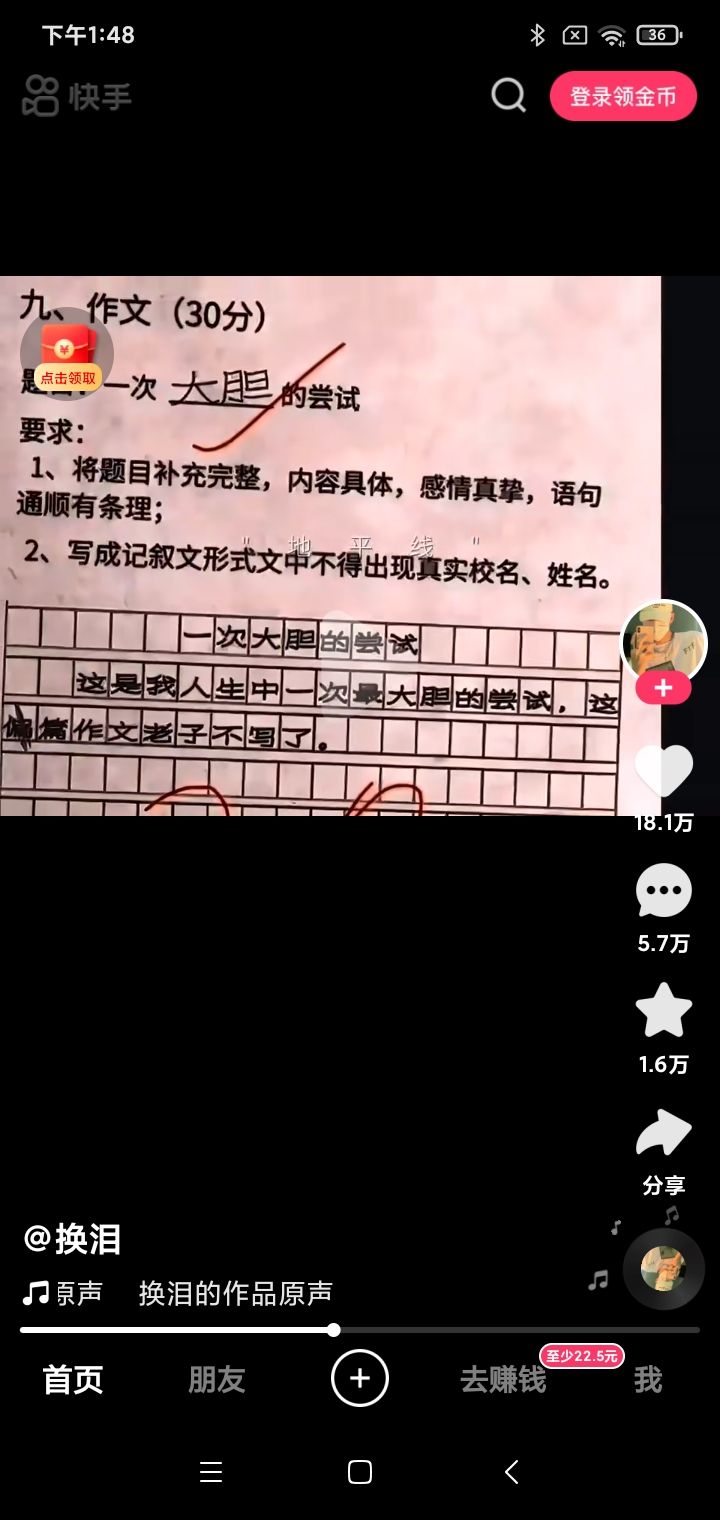 下午1:48
36
快手
登录领金币
九、作文（30分）
点击领取
一次 大胆 的尝试
要求：
1、将题目补充完整，内容具体，感情真挚，语句
通顺有条理；
" 地 平 线 "
2、写成记叙文形式文中不得出现真实校名、姓名。
一次大胆的尝试
这是我人生中一次最大胆的尝试，这
篇作文老子不写了。
18.1万
5.7万
1.6万
分享
@换泪
原声 换泪的作品原声
至少22.5元
首页 朋友 去赚钱 我